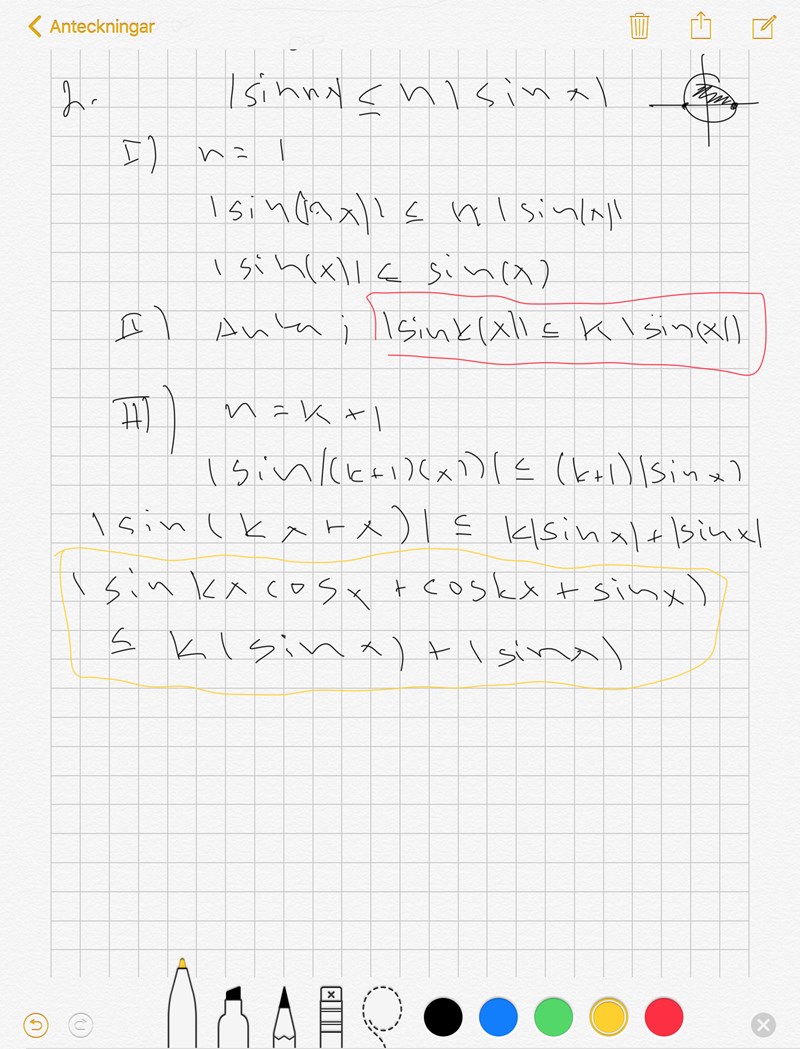 Anteckningar
2. |sin nx| ≤ n | sin x |
I) n = 1
| sin( x)| ≤ n | sin(x)|
| sin(x)| ≤ sin(x)
II) Anta ; |sin k(x)| ≤ k | sin(x)|
III) n = k + 1
| sin((k+1)(x))| ≤ (k+1)|sin x)
| sin ( k x + x ) | ≤ k|sin x| + |sin x|
| sin kx cos x + cos kx + sin x )
≤ k ( sin x ) + | sin x |